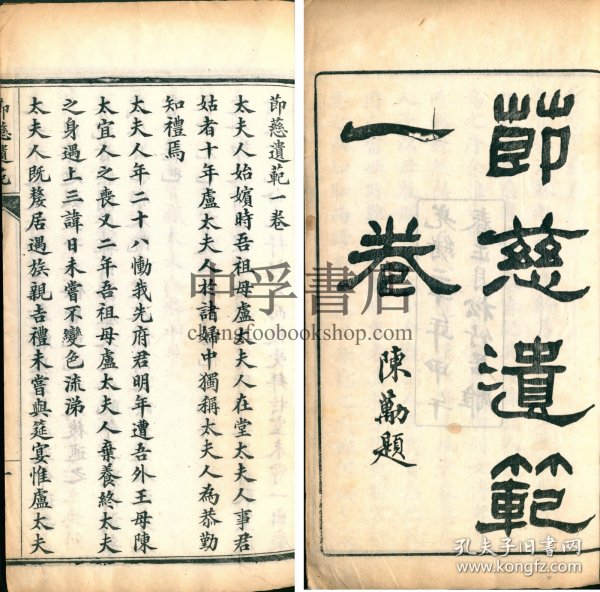 節慈遺範
一卷
陳勱題
節慈遺範一卷
太夫人始嬪時吾祖母盧太夫人在堂太夫人事君
姑者十年盧太夫人於諸婦中獨稱太夫人為恭勤
知禮焉
太夫人年二十八慟我先府君明年遭吾外王母陳
太宜人之喪又二年吾祖母盧太夫人棄養終太夫
之身遇上三諱日未嘗不變色流涕
太夫人既嫠居遇族親吉禮未嘗與筵宴惟盧太夫
節慈遺範
一
中孚書店
chungfoobookshop.com
孔夫子旧書网
www.kongfz.com